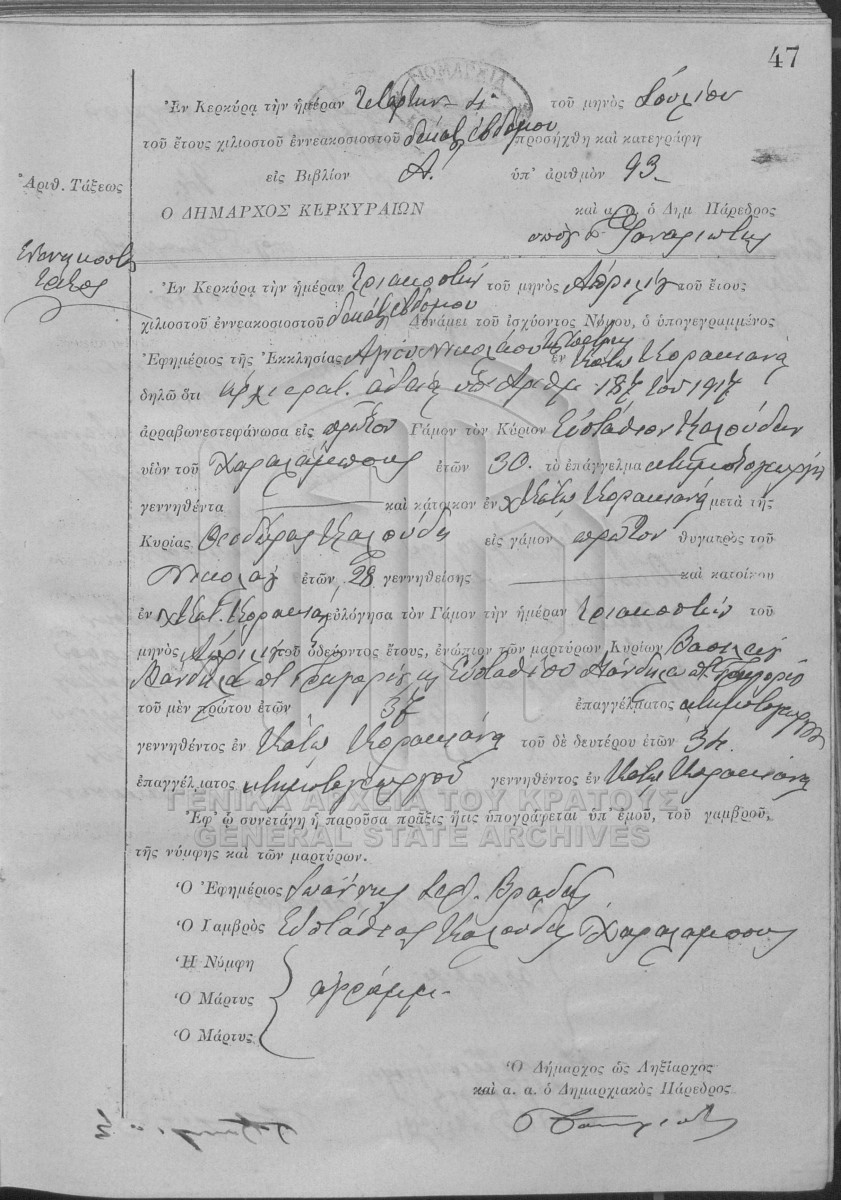 47
Ἐν Κερκύρᾳ τὴν ἡμέραν τετάρτην 4 τοῦ μηνὸς Ἰουλίου
τοῦ ἔτους χιλιοστοῦ ἐννεακοσιοστοῦ δεκάτ. ἑβδόμου προσήχθη καὶ κατεγράφη
εἰς Βιβλίον Α. ὑπ' ἀριθμὸν 93
Ἀριθ. Τάξεως
Ο ΔΗΜΑΡΧΟΣ ΚΕΡΚΥΡΑΙΩΝ καὶ α. α. ὁ Δημ Πάρεδρος
Ἐνενηκοστὸς
τρίτος
Ἐν Κερκύρᾳ τὴν ἡμέραν τριακοστὴν τοῦ μηνὸς Ἀπριλίου τοῦ ἔτους
χιλιοστοῦ ἐννεακοσιοστοῦ δεκάτ. ἑβδόμου Δυνάμει τοῦ ἰσχύοντος Νόμου, ὁ ὑπογεγραμμένος
Ἐφημέριος τῆς Ἐκκλησίας Ἁγίου Νικολάου ἐν Κάτω Κορακιάνᾳ
δηλῶ ὅτι ἀρχιερατ. ἀδείᾳ ὑπ' ἀριθμ. 187 τοῦ 1917
ἀρραβωνεστεφάνωσα εἰς πρῶτον Γάμον τὸν Κύριον Εὐστάθιον Καλούδην
υἱὸν τοῦ Χαραλάμπους ἐτῶν 30. τὸ ἐπάγγελμα κτηματογεωργὸν
γεννηθέντα καὶ κάτοικον ἐν Κάτω Κορακιάνᾳ μετὰ τῆς
Κυρίας Θεοδώρας Καλούδη εἰς γάμον πρῶτον θυγατρὸς τοῦ
Νικολάου ἐτῶν 28 γεννηθείσης καὶ κατοίκου
ἐν Κάτ. Κορακιάνᾳ εὐλόγησα τὸν Γάμον τὴν ἡμέραν τριακοστὴν τοῦ
μηνὸς Ἀπριλίου τοῦ ὁδεύοντος ἔτους, ἐνώπιον τῶν μαρτύρων Κυρίων Βασιλείου
Μάνδηλα Γρηγορίου Εὐσταθίου Μάνδηλα Γρηγορίου
τοῦ μὲν πρώτου ἐτῶν 37 ἐπαγγέλματος κτηματογεωργοῦ
γεννηθέντος ἐν Κάτω Κορακιάνᾳ τοῦ δὲ δευτέρου ἐτῶν 34.
ἐπαγγέλματος κτηματογεωργοῦ γεννηθέντος ἐν Κάτω Κορακιάνᾳ
ΓΕΝΙΚΑ ΑΡΧΕΙΑ ΤΟΥ ΚΡΑΤΟΥΣ
Ἐφ' ᾧ συνετάγη ἡ παροῦσα πρᾶξις ἥτις ὑπογράφεται ὑπ' ἐμοῦ, τοῦ γαμβροῦ,
GENERAL STATE ARCHIVES
τῆς νύμφης καὶ τῶν μαρτύρων.
Ὁ Ἐφημέριος Ἰωάννης Βραδῆς
Ὁ Γαμβρὸς Εὐστάθιος Καλούδης Χαραλάμπους
Ἡ Νύμφη
Ὁ Μάρτυς ἀγράμμ.
Ὁ Μάρτυς
Ὁ Δήμαρχος ὡς Ληξίαρχος
καὶ α. α. ὁ Δημαρχιακὸς Πάρεδρος